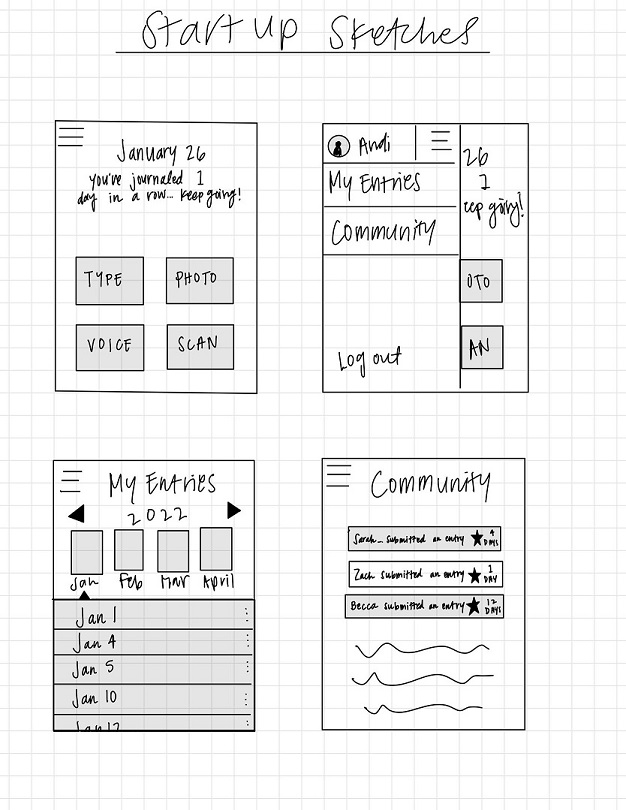 Start up Sketches
January 26
you've journaled 1
day in a row... keep going!
TYPE
PHOTO
VOICE
SCAN
Andi
My Entries
Community
Log out
26
1
eep going!
OTO
AN
My Entries
2022
Jan Feb Mar April
Jan 1
Jan 4
Jan 5
Jan 10
Jan 12
Community
Sarah submitted an entry 4 DAYS
Zach submitted an entry 1 DAY
Becca submitted an entry 12 DAYS